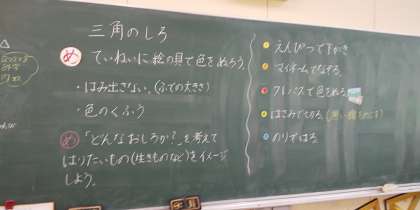 三角のしろ
め ていねいに絵の具で色をぬろう。
・はみ出さない。(ふでの大きさ)
・色のくふう
め 「どんなおしろか?」を考えて
はりたいもの(生きものなど)をイメージ
しよう。
えんぴつで下がき
マイネームでなぞる。
クレパスで色をぬる。
はさみで切る。
のりではる。